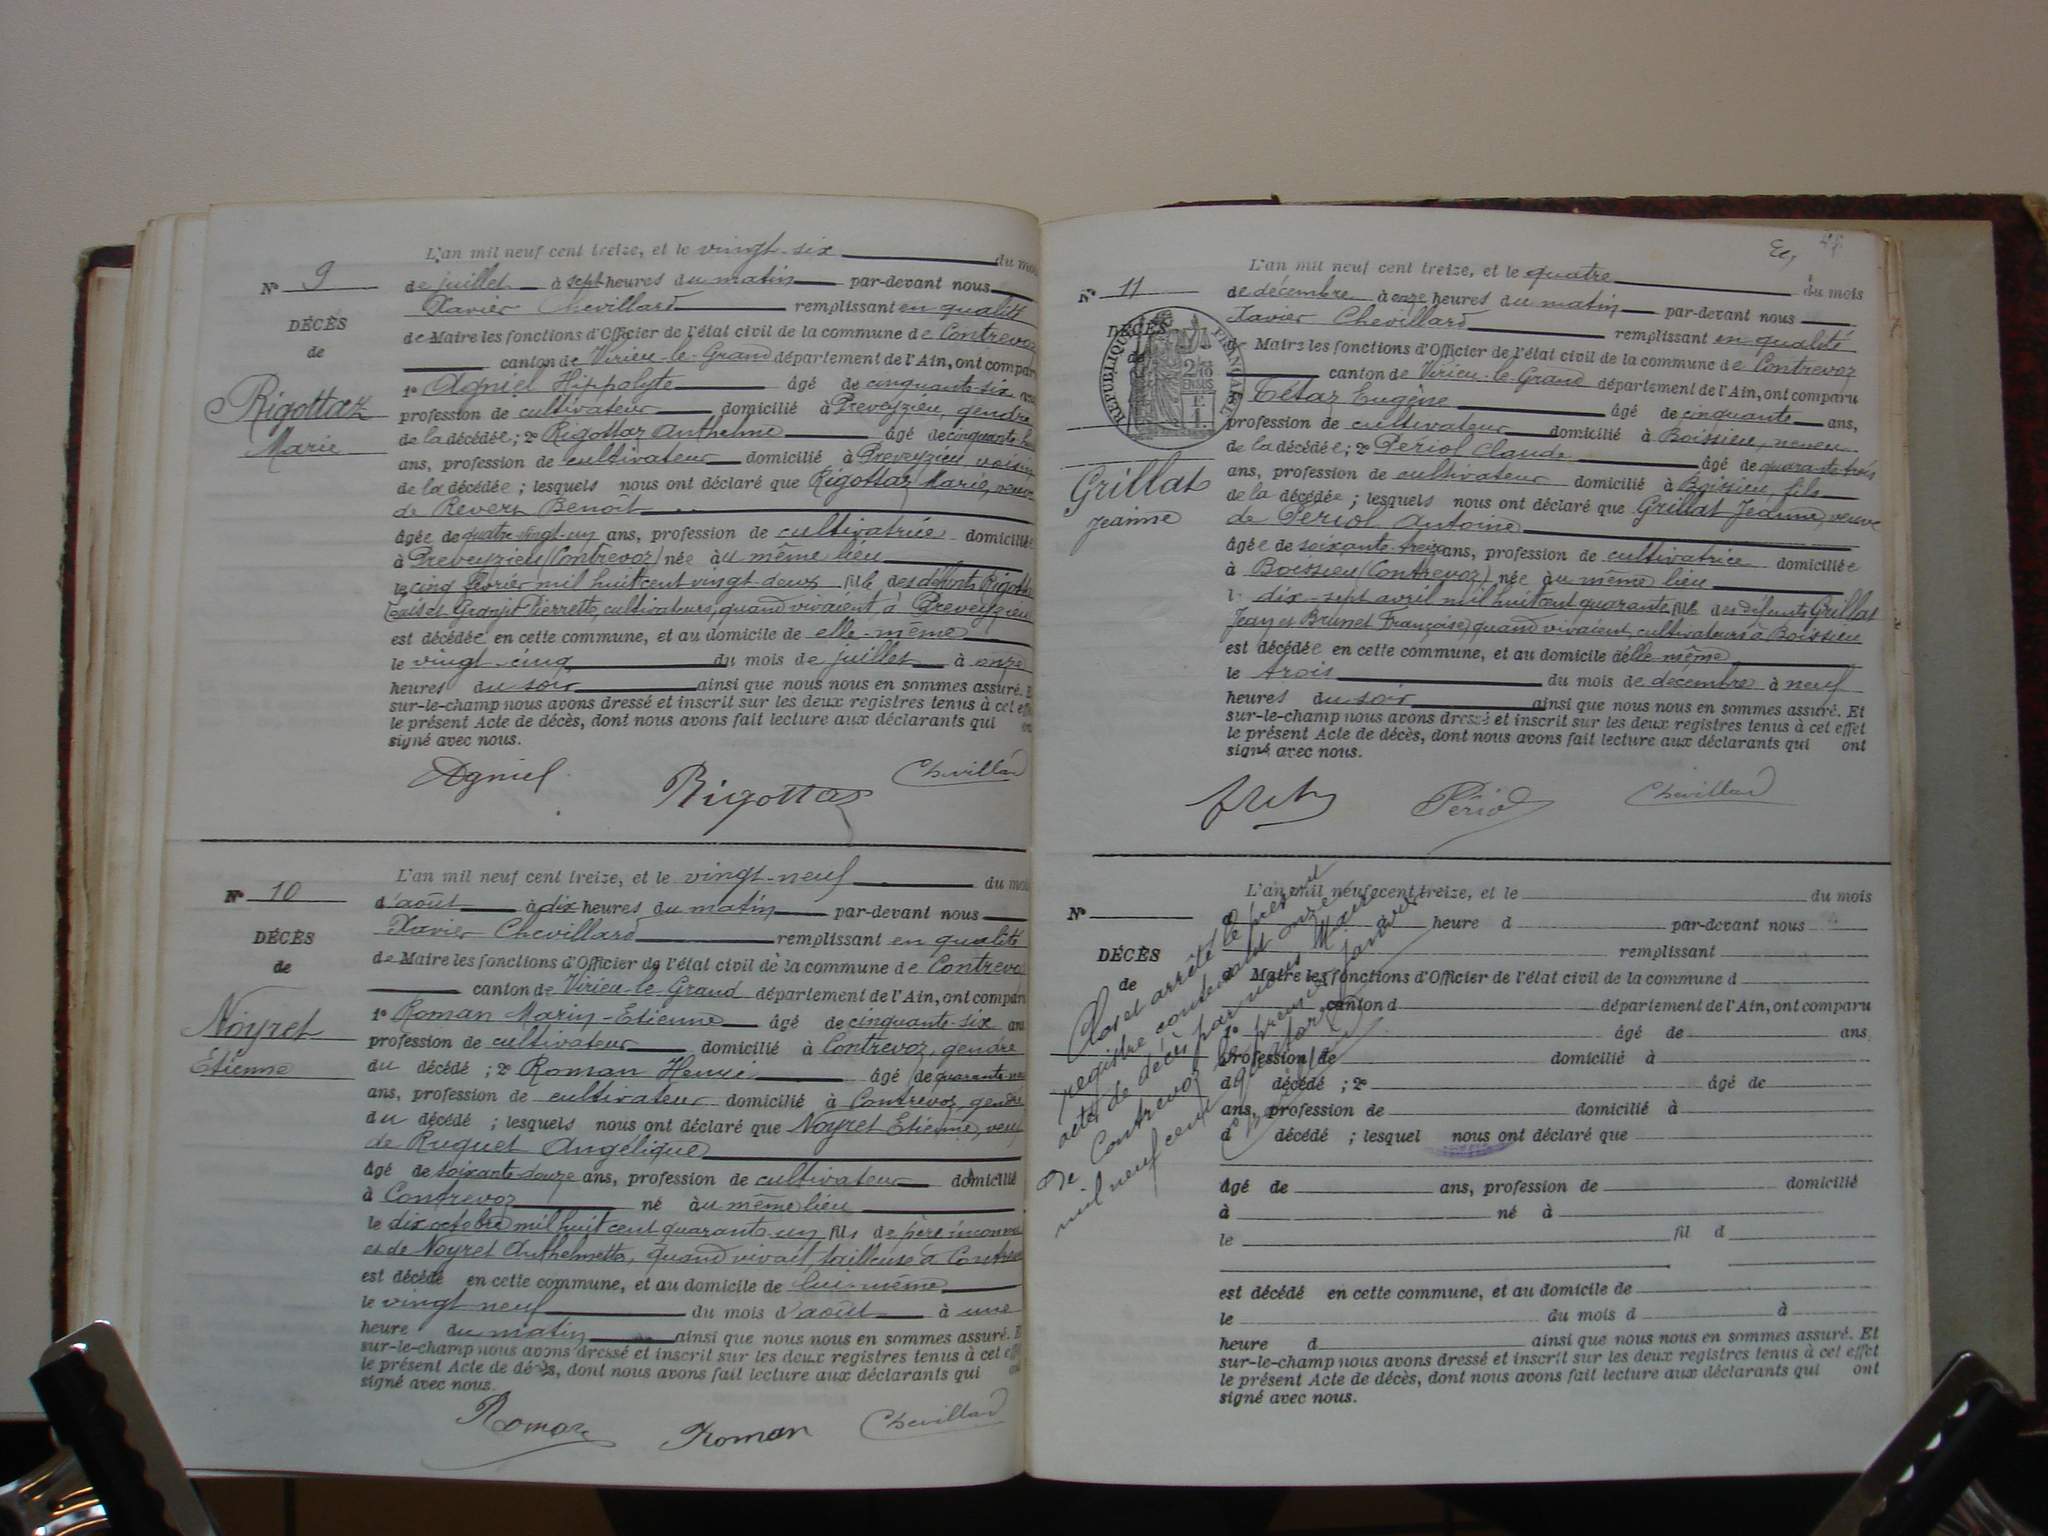 L'an mil neuf cent treize, et le vingt-six du mois
N° 9
de juillet à sept heures du matin par-devant nous
Xavier Chevillard remplissant en qualité
DÉCÈS
de Maire les fonctions d'Officier de l'état civil de la commune de Contrevoz
de
canton de Virieu-le-Grand département de l'Ain, ont comparu
1° Agniel Hippolyte âgé de cinquante-six ans
Rigottaz
profession de cultivateur domicilié à Preveyzieu, gendre
Marie
de la décédée; 2° Rigottaz Anthelme âgé de cinquante
ans, profession de cultivateur domicilié à Preveyzieu, voisin
de la décédée; lesquels nous ont déclaré que Rigottaz Marie, veuve
de Revert Benoît
âgée de quatre-vingt-un ans, profession de cultivatrice domiciliée
à Preveyzieu (Contrevoz) née au même lieu
le cinq février mil huit cent vingt-deux fille des défunts Rigottaz
et Pierrette, cultivateurs, quand vivaient, à Preveyzieu
est décédée en cette commune, et au domicile de elle-même
le vingt-cinq du mois de juillet à onze
heures du soir ainsi que nous nous en sommes assuré. Et
sur-le-champ nous avons dressé et inscrit sur les deux registres tenus à cet effet
le présent Acte de décès, dont nous avons fait lecture aux déclarants qui ont
signé avec nous.
Agniel Rigottaz Chevillard
L'an mil neuf cent treize, et le vingt-neuf du mois
N° 10
d'août à dix heures du matin par-devant nous
Xavier Chevillard remplissant en qualité
DÉCÈS
de Maire les fonctions d'Officier de l'état civil de la commune de Contrevoz
de
canton de Virieu-le-Grand département de l'Ain, ont comparu
1° Roman Marin-Etienne âgé de cinquante-six ans
Noyret
profession de cultivateur domicilié à Contrevoz, gendre
Etienne
du décédé; 2° Roman Henri âgé de quarante-neuf
ans, profession de cultivateur domicilié à Contrevoz, gendre
du décédé; lesquels nous ont déclaré que Noyret Etienne, veuf
de Ruquet Angélique
âgé de soixante-douze ans, profession de cultivateur domicilié
à Contrevoz né au même lieu
le dix octobre mil huit cent quarante-un fils de père inconnu
et de Noyret Anthelmette, quand vivait, tailleuse à Contrevoz
est décédé en cette commune, et au domicile de lui-même
le vingt neuf du mois d'août à une
heure du matin ainsi que nous nous en sommes assuré. Et
sur-le-champ nous avons dressé et inscrit sur les deux registres tenus à cet effet
le présent Acte de décès, dont nous avons fait lecture aux déclarants qui ont
signé avec nous.
Roman Roman Chevillard
L'an mil neuf cent treize, et le quatre du mois
N° 11
de décembre à onze heures du matin par-devant nous
Xavier Chevillard remplissant en qualité
DÉCÈS
de
RÉPUBLIQUE FRANÇAISE
de Maire les fonctions d'Officier de l'état civil de la commune de Contrevoz
canton de Virieu-le-Grand département de l'Ain, ont comparu
Tétaz Eugène âgé de cinquante ans,
profession de cultivateur domicilié à Boissieu, neveu
de la décédée; 2° Périol Claude âgé de quarante-trois
ans, profession de cultivateur domicilié à Boissieu, fils
Grillat
Jeanne
de la décédée; lesquels nous ont déclaré que Grillat Jeanne, veuve
de Périol Antoine
âgée de soixante-treize ans, profession de cultivatrice domiciliée
à Boissieu (Contrevoz) née au même lieu
l dix-sept avril mil huit cent quarante fille des défunts Grillat
Jean et Brunet Françoise, quand vivaient, cultivateurs à Boissieu
est décédée en cette commune, et au domicile d'elle-même
le trois du mois de décembre à neuf
heures du soir ainsi que nous nous en sommes assuré. Et
sur-le-champ nous avons dressé et inscrit sur les deux registres tenus à cet effet
le présent Acte de décès, dont nous avons fait lecture aux déclarants qui ont
signé avec nous.
Périol Chevillard
L'an mil neuf cent treize, et le du mois
N°
à heure d par-devant nous
remplissant
DÉCÈS
d Maire les fonctions d'Officier de l'état civil de la commune d
de
canton d département de l'Ain, ont comparu
1° âgé de ans,
profession de domicilié à
d décédé; 2° âgé de
ans, profession de domicilié à
d décédé; lesquel nous ont déclaré que
âgé de ans, profession de domicilié
à né à
le fil d
est décédé en cette commune, et au domicile de
le du mois d à
heure d ainsi que nous nous en sommes assuré. Et
sur-le-champ nous avons dressé et inscrit sur les deux registres tenus à cet effet
le présent Acte de décès, dont nous avons fait lecture aux déclarants qui ont
signé avec nous.
Clos et arrêté le présent
registre contenant onze
actes de décès par nous Maire
de Contrevoz le premier janvier
mil neuf cent quatorze
Chevillard